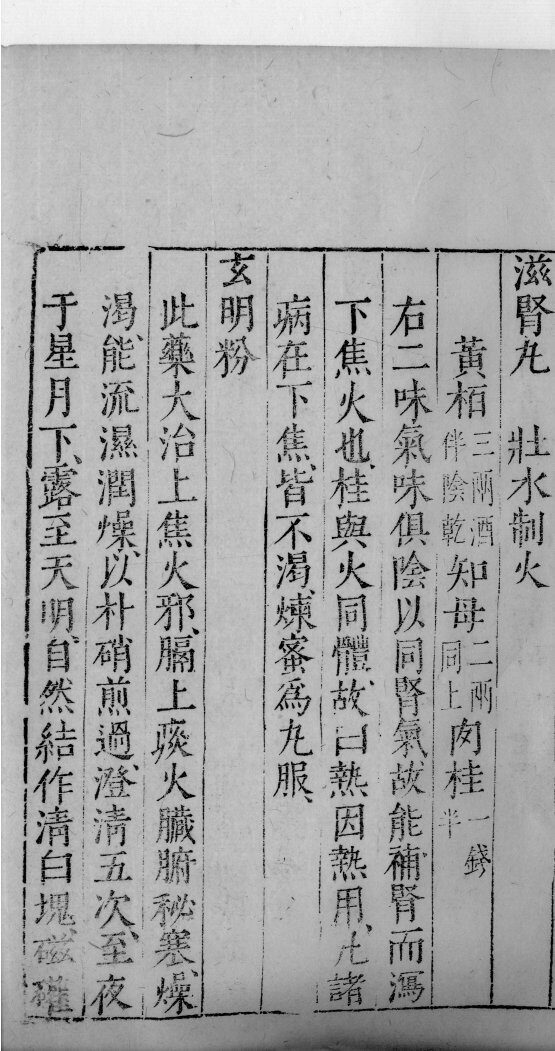 滋腎丸　壯水制火
黃栢三兩酒伴陰乾知母二兩同上肉桂一錢半
右二味氣味俱陰以同腎氣、故能補腎而瀉
下焦火也、桂與火同體、故曰熱因熱用、凢諸
病在下焦、皆不渴、煉蜜爲丸服、
玄明粉
此藥大治上焦火邪、膈上痰火臟腑秘塞、燥
渴、能流濕潤燥、以朴硝煎過、澄清五次、至夜
于星月下、露至天明、自然結作清白塊、磁礶